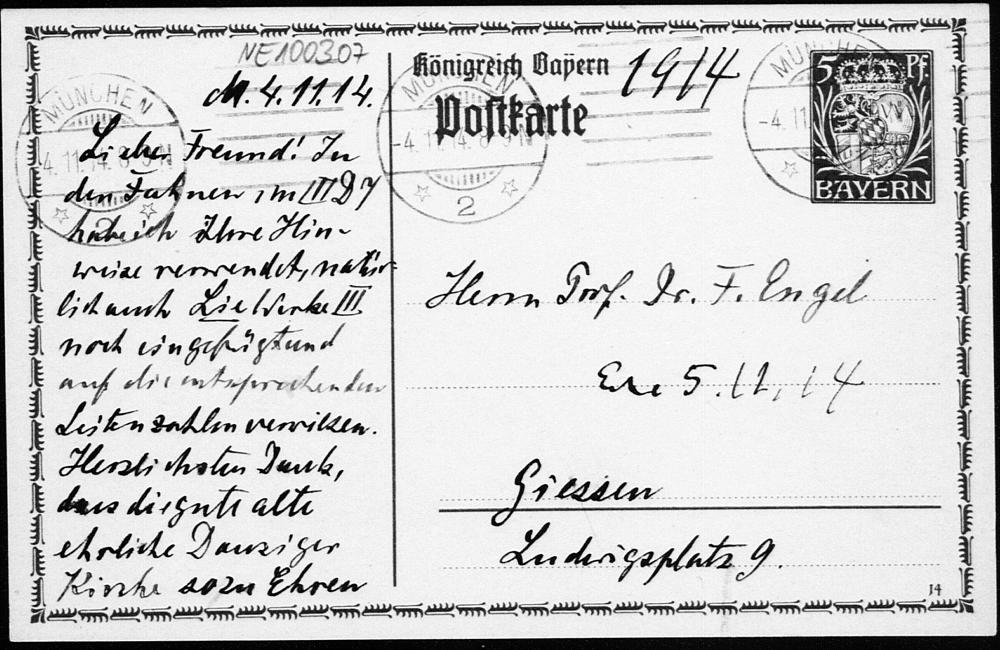 NE100307
Königreich Bayern
1914
Postkarte
MÜNCHEN
-4.11.14.8-9N
2
MÜNCHEN
4.11.14.8-9N
2
MÜNCHEN
-4.11
5 Pf.
BAYERN
M. 4.11.14.
Lieber Freund! In
den Fahnen im III D 7
habe ich Ihre Hin-
weise verwendet, natür-
lich auch Lie Werke III
noch eingefügt und
auf die entsprechenden
Seitenzahlen verwiesen.
Herzlichsten Dank,
dass die gute alte
ehrliche Danziger
Kirche so zu Ehren
Herrn Prof. Dr. F. Engel
5.11.14
Giessen
Ludwigsplatz 9.
14